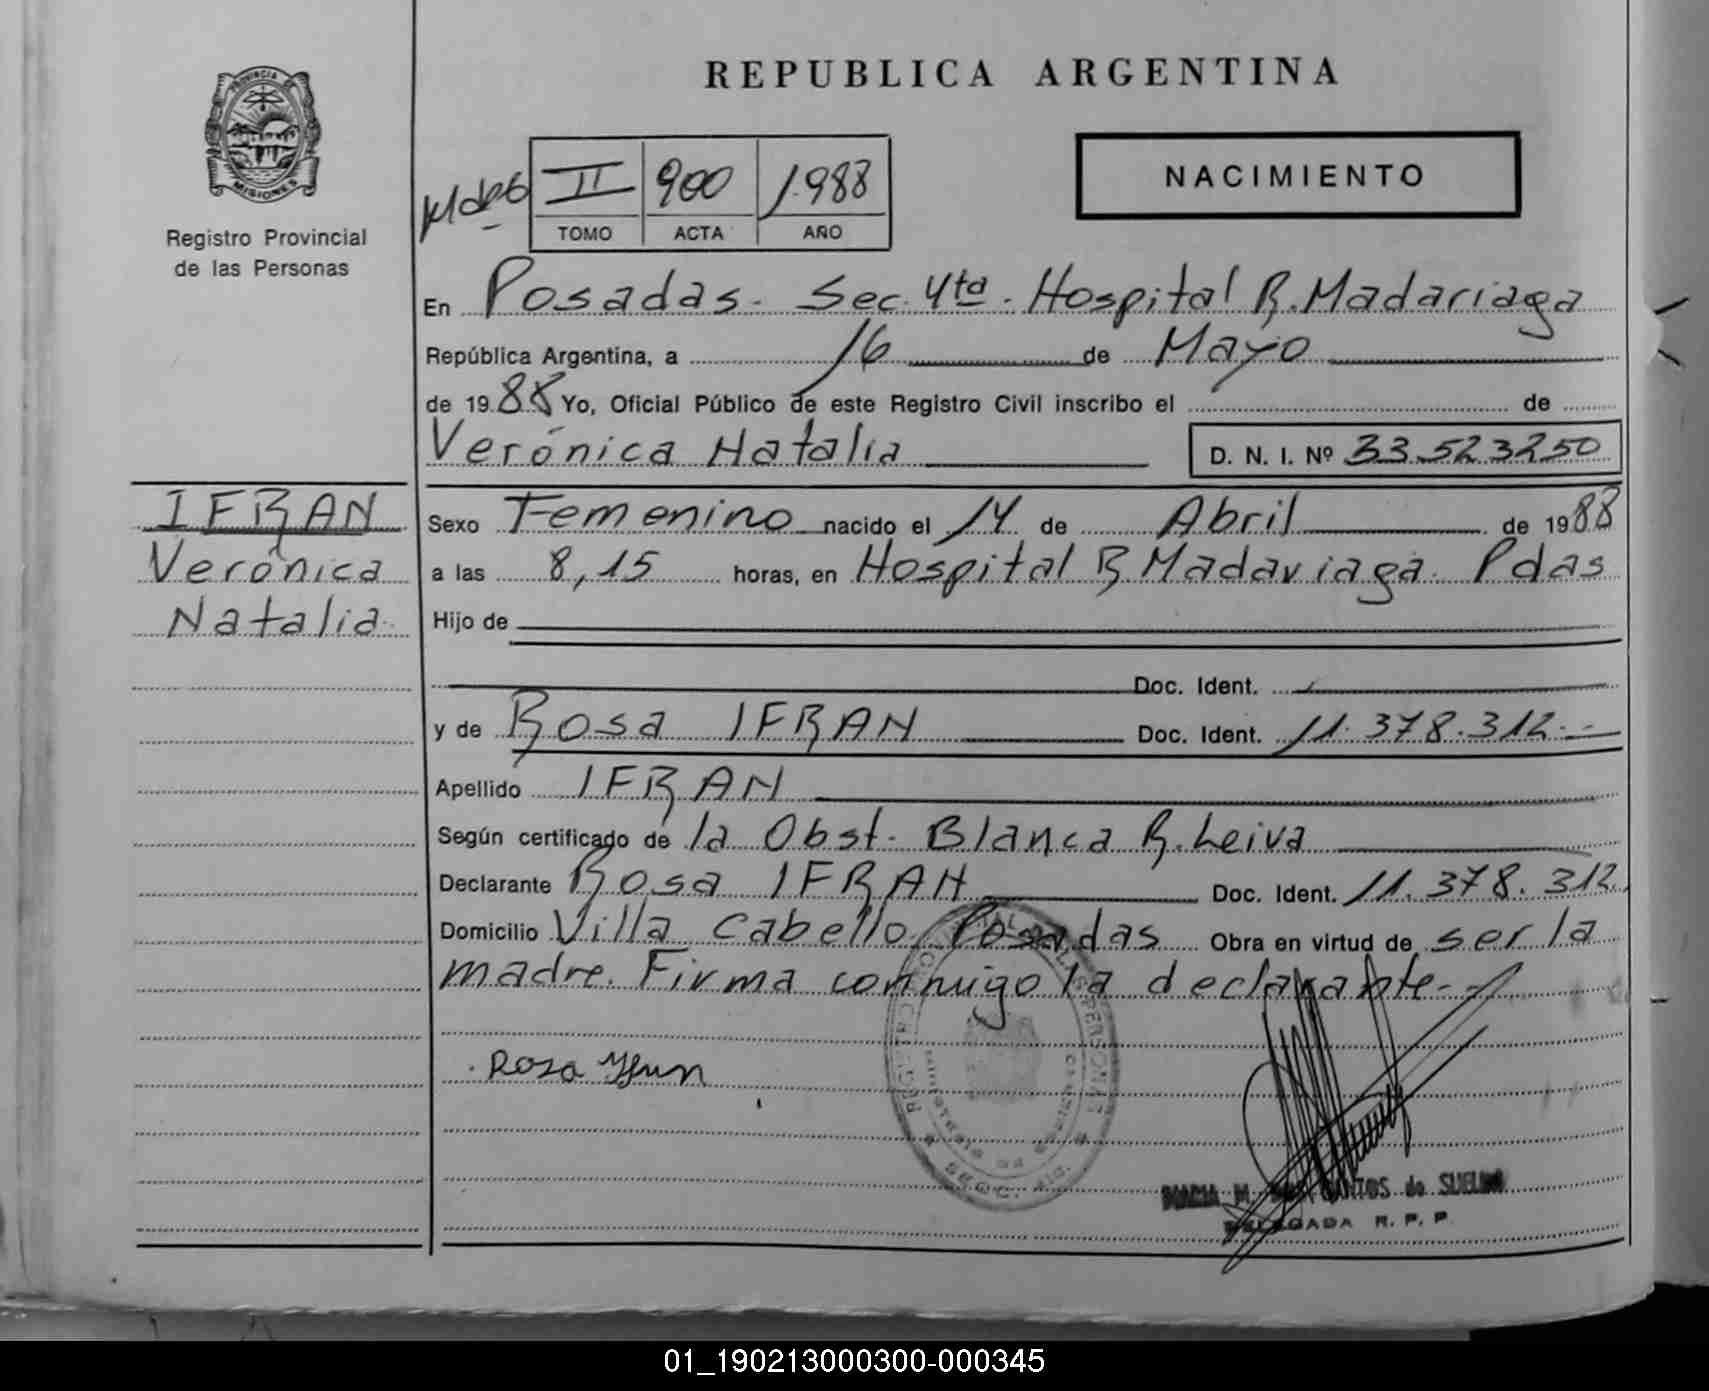 REPUBLICA ARGENTINA
PROVINCIA DE
MISIONES
Registro Provincial
de las Personas
NACIMIENTO
II 900 1.988
TOMO ACTA AÑO
En Posadas. Sec. 4ta. Hospital R. Madariaga
República Argentina, a 16 de Mayo
de 1988 Yo, Oficial Público de este Registro Civil inscribo el de
Verónica Natalia D. N. I. Nº 33.523250
IFRAN
Verónica
Natalia
Sexo Femenino nacido el 14 de Abril de 1988
a las 8,15 horas, en Hospital R. Madariaga. Pdas
Hijo de
Doc. Ident.
y de Rosa IFRAN Doc. Ident. 11.378.312
Apellido IFRAN
Según certificado de la Obst. Blanca R. Leiva
Declarante Rosa IFRAN Doc. Ident. 11.378.312
Domicilio Villa Cabello Posadas Obra en virtud de ser la
madre. Firma conmigo la declarante-
Rosa Yfran
M. SANTOS de
DELEGADA R. P. P.
01_190213000300-000345